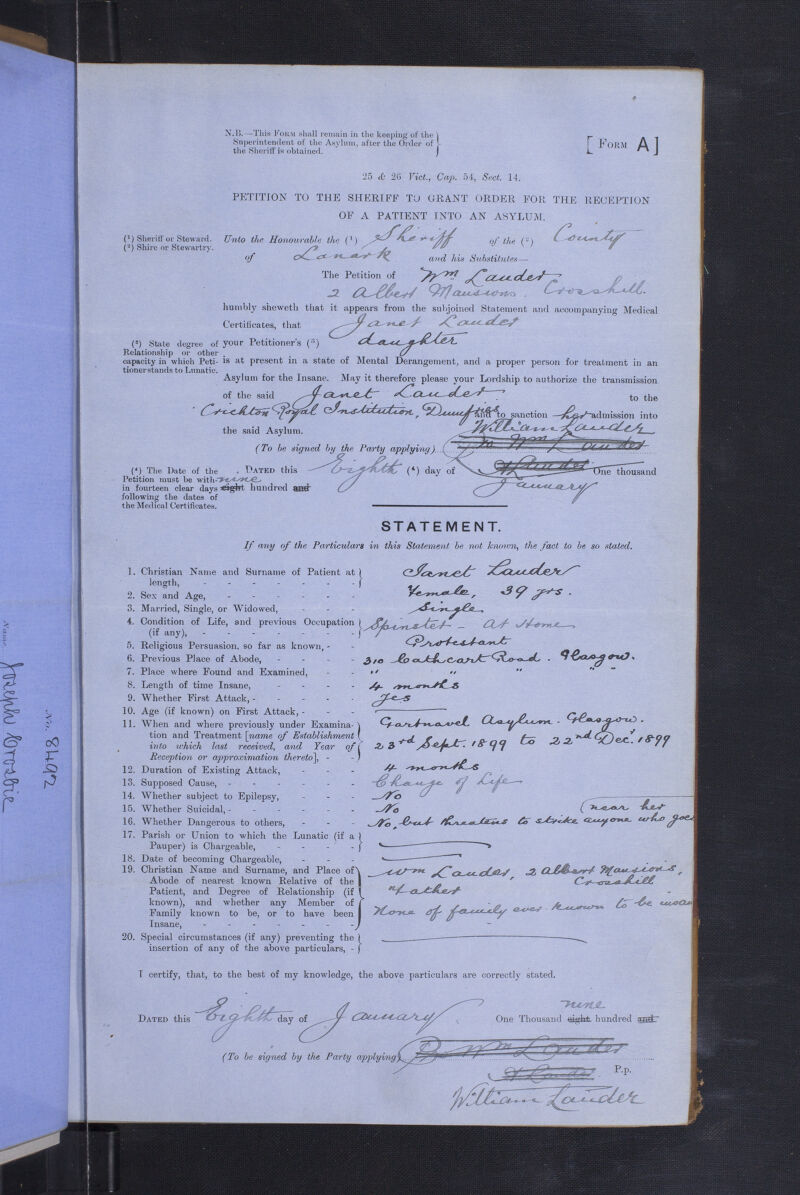 N.B.—This Form shall remain in the keeping of the
Superintendent of the Asylum, after the Order of
the Sheriff is obtained.
[Form A]
25 & 26 Vict., Cap. 54, Sect. 14.
PETITION TO THE SHERIFF TO GRANT ORDER FOR THE RECEPTION
OF A PATIENT INTO AN ASYLUM.
(1) Sheriff or Steward.
(2) Shire or Stewartry.
Unto the Honourable the (1) Sheriff of the (2) County
of Lanark and his Substitutes—
The Petition of Wm Lauder
2 Albert Mansions. Crosshill.
humbly sheweth that it appears from the subjoined Statement and accompanying Medical
Certificates, that Janet Lauder
(3) State degree of
Relationship or other
capacity in which Peti-
tioner stands to Lunatic.
your Petitioner's (3) daughter
is at present in a state of Mental Derangement, and a proper person for treatment in an
Asylum for the Insane. May it therefore please your Lordship to authorize the transmission
of the said Janet Lauder to the
Crichton Royal Institution, Dumfries and to sanction her admission into
the said Asylum. William Lauder
(To be signed by the Party applying) Wm Lauder
Lauder
(4) The Date of the
Petition must be with-
in fourteen clear days
following the dates of
the Medical Certificates.
Dated this Eighth (4) day of January One thousand
nine
eight hundred and
STATEMENT.
If any of the Particulars in this Statement be not known, the fact to be so stated.
1. Christian Name and Surname of Patient at
length, Janet Lauder
2. Sex and Age, Female, 39 yrs.
3. Married, Single, or Widowed, Single
4. Condition of Life, and previous Occupation
(if any), Spinster - At Home
5. Religious Persuasion, so far as known, Protestant
6. Previous Place of Abode, 310 Cathcart Road. Glasgow.
7. Place where Found and Examined, " " " "
8. Length of time Insane, 4 months
9. Whether First Attack, Yes
10. Age (if known) on First Attack,
11. When and where previously under Examina-
tion and Treatment [name of Establishment
into which last received, and Year of
Reception or approximation thereto],
Gartnavel Asylum. Glasgow.
23rd Sept. 1899 to 22nd Dec. 1899
12. Duration of Existing Attack, 4 months
13. Supposed Cause, Change of Life
14. Whether subject to Epilepsy, No
15. Whether Suicidal, No
16. Whether Dangerous to others, No, but threatens to strike anyone who goes
(near her
17. Parish or Union to which the Lunatic (if a
Pauper) is Chargeable,
18. Date of becoming Chargeable,
19. Christian Name and Surname, and Place of
Abode of nearest known Relative of the
Patient, and Degree of Relationship (if
known), and whether any Member of
Family known to be, or to have been
Insane,
Wm Lauder, 2 Albert Mansions,
Crosshill
Father
None of family ever known to be insan
20. Special circumstances (if any) preventing the
insertion of any of the above particulars,
I certify, that, to the best of my knowledge, the above particulars are correctly stated.
nine
Dated this Eighth day of January One Thousand eight hundred and
(To be signed by the Party applying) Wm Lauder
Lauder P.p.
William Lauder
Name Joseph Crosbie
No. 8492